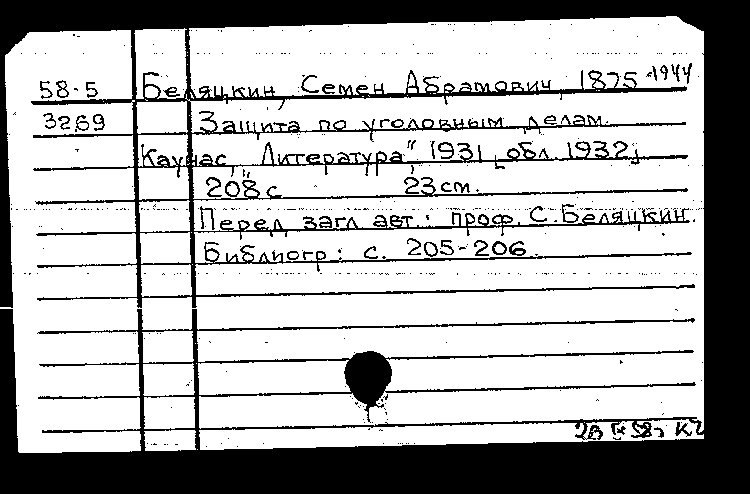 58-5 Беляцкин, Семен Абрамович, 1875-1944
3269 Защита по уголовным делам.
Каунас, „Литература", 1931 [обл. 1932]
208 с 23 см.
Перед загл. авт.: проф. С. Беляцкин.
Библиогр: с. 205-206.